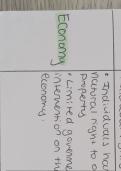 Economy
• Individuals hav
natural right to o
property
• Limited governme
intervention on th
economy.